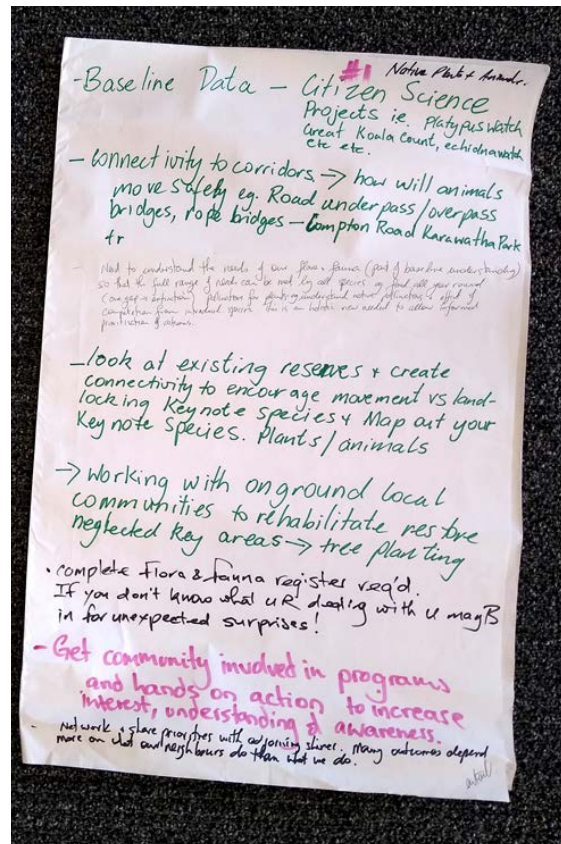 #1 Native Plants & Animals.
- Baseline Data - Citizen Science
Projects i.e. Platypuswatch
Great Koala Count, echidnawatch
etc etc.
- Connectivity to corridors → how will animals
move safely eg. Road underpass/overpass
bridges, rope bridges - Compton Road Karawatha Park
tr
- Need to understand the needs of our flora & fauna (part of baseline understanding)
so that the full range of needs can be met by all species eg food all year round
(one gap = extinction) pollinators for planting, understand native pollinators & effect of
competition from introduced species this is an holistic view needed to allow informed
prioritisation of actions.
- look at existing reserves & create
connectivity to encourage movement vs land-
locking Keynote species & Map out your
Keynote Species. Plants/animals
→ Working with onground local
communities to rehabilitate restore
neglected Key areas → tree planting
• complete Flora & fauna register req'd.
If you don't know what uR dealing with u may B
in for unexpected surprises!
- Get community involved in programs
and hands on action to increase
interest, understanding & awareness.
- Network & share priorities with adjoining shires. Many outcomes depend
more on what our neighbours do than what we do.